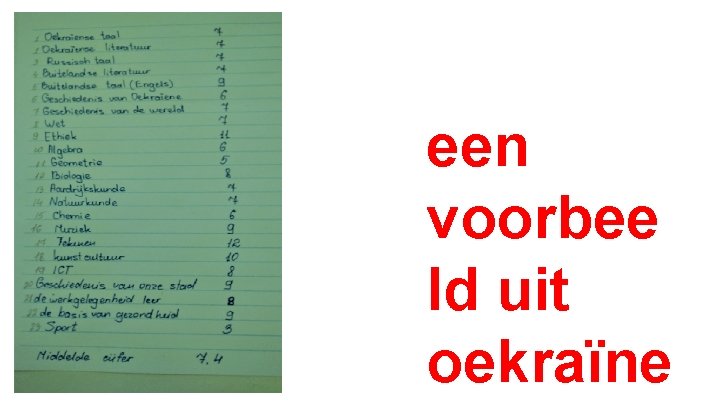 1 Oekraïense taal 7
2 Oekraïense literatuur 7
3 Russisch taal 7
4 Buitelandse literatuur 7
5 Buitelandse taal (Engels) 9
6 Geschiedenis van Oekraïene 6
7 Geschiedenis van de wereld 7
8 Wet 7
9 Ethiek 11
10 Algebra 6
11 Geometrie 5
12 Biologie 8
13 Aardrijkskunde 7
14 Natuurkunde 7
15 Chemie 6
16 Muziek 9
17 Tekenen 12
18 kunstcultuur 10
19 ICT 8
20 Geschiedenis van onze stad 9
21 de werkgelegenheid leer 8
22 de basis van gezondheid 9
23 Sport 3
Middelde cijfer 7,4
een
voorbee
ld uit
oekraïne